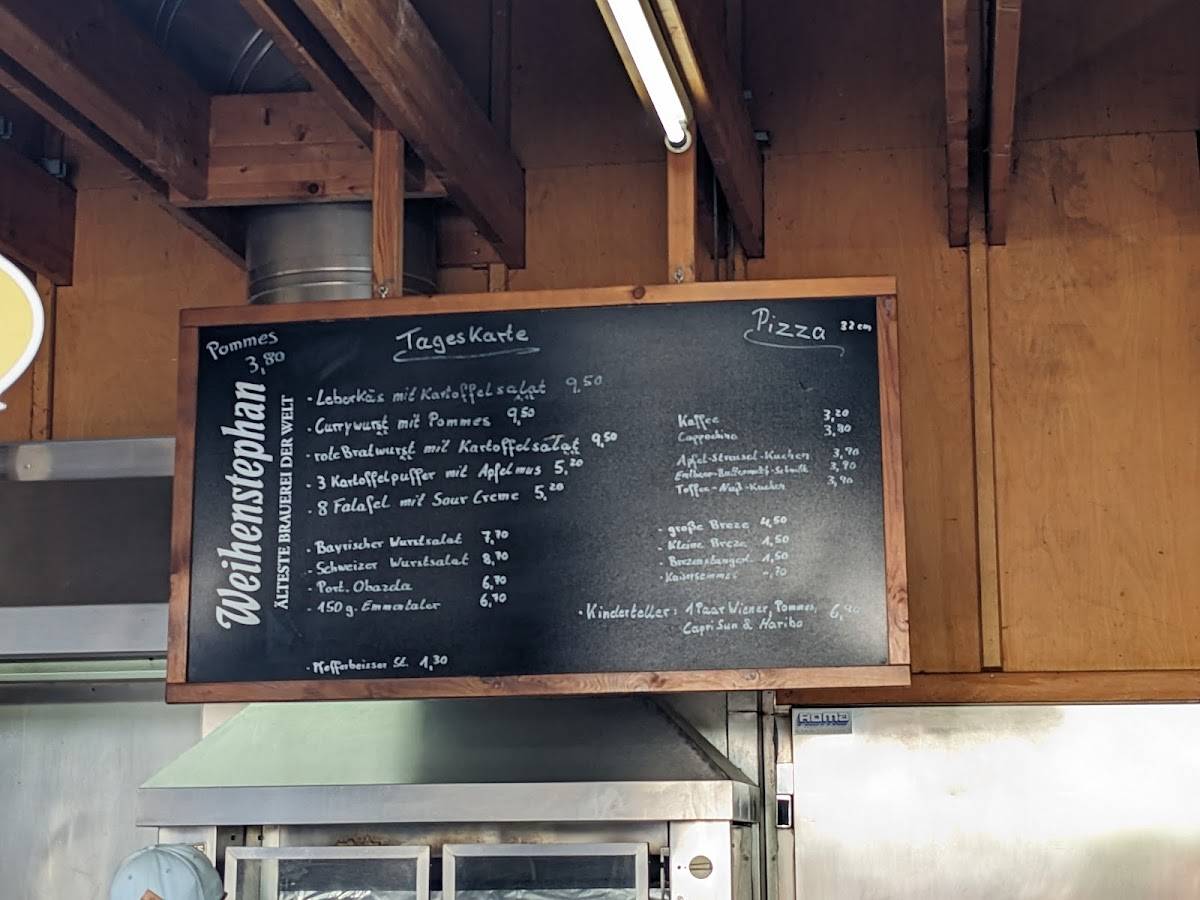 Pommes
3,80
Weihenstephan
ÄLTESTE BRAUEREI DER WELT
TagesKarte
- Leberkäs mit Kartoffelsalat 9,50
- Currywurst mit Pommes 9,50
- rote Bratwurst mit Kartoffelsalat 9,50
- 3 Kartoffelpuffer mit Apfelmus 5,20
- 8 Falafel mit Sour Creme 5,20
- Bayrischer Wurstsalat 7,70
- Schweizer Wurstsalat 8,70
- Port. Obazda 6,70
- 150 g. Emmentaler 6,70
- Pfefferbeisser St. 1,30
Pizza 32 cm
Kaffee 3,20
Cappuchino 3,80
Apfel-Streusel-Kuchen 3,90
3,90
Toffee-Nuß-Kuchen 3,90
- große Breze 4,50
- Kleine Breze 1,50
- Brezenstangerl 1,50
- Kaisersemmel -,70
- Kinderteller: 1 Paar Wiener, Pommes, 6,90
CapriSun & Haribo
ROMA